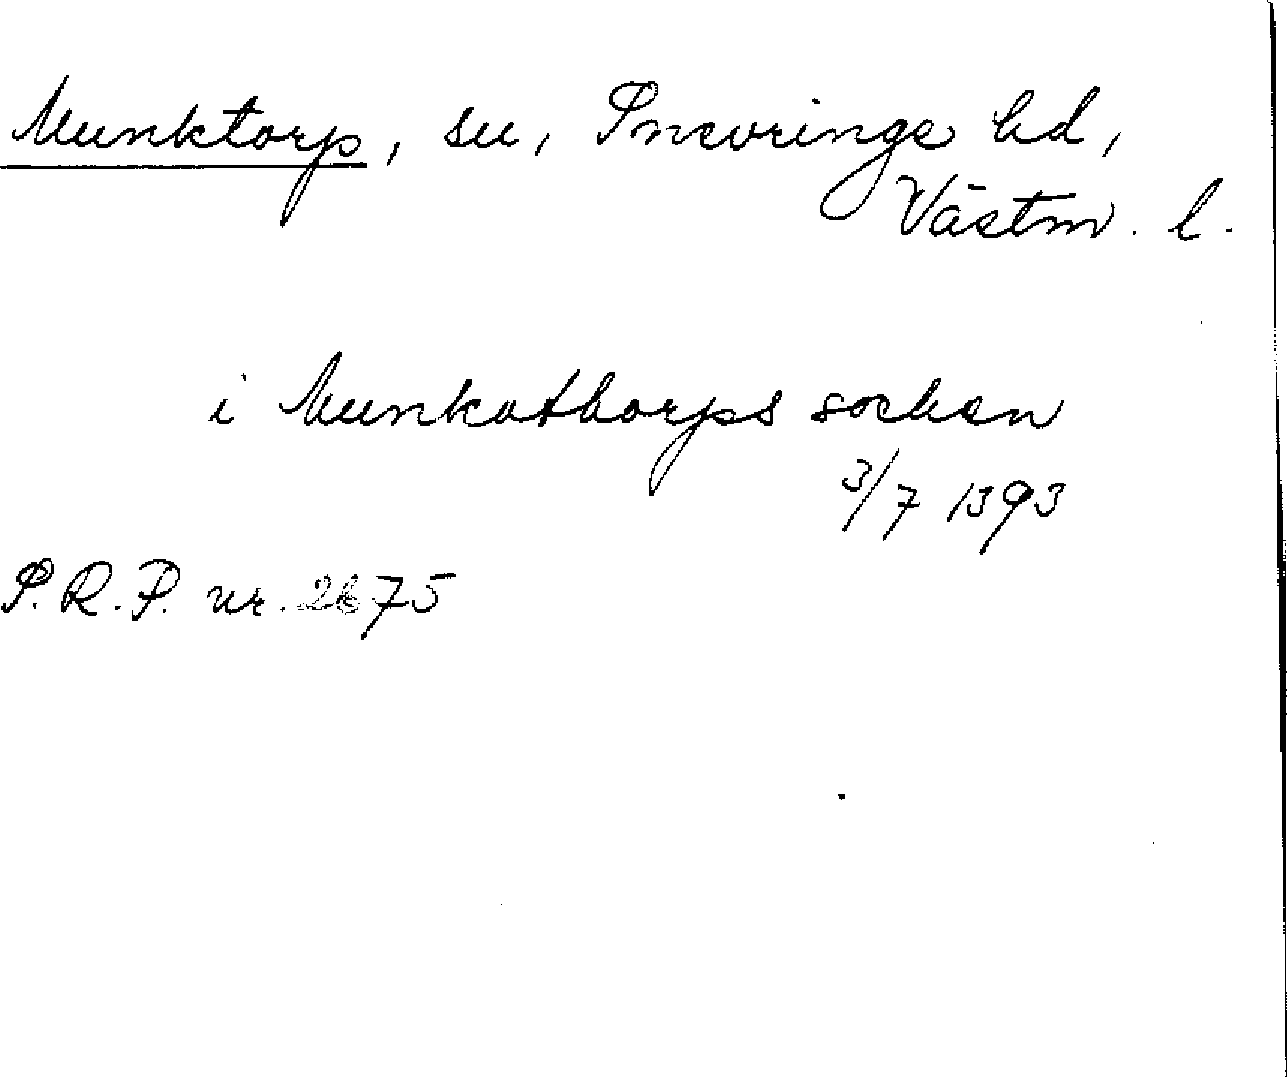 Munktorp, sn, Snevringe hd,
Västm. l.
i Munkathorps sochen
3/7 1393
P.R.P. nr. 2675